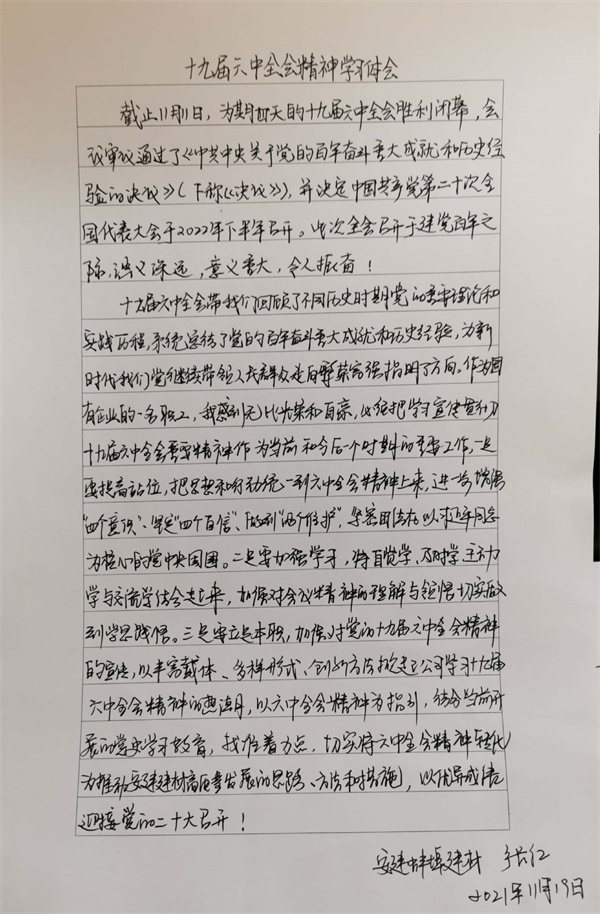 十九届六中全会精神学习体会
截止11月11日，为期四天的十九届六中全会胜利闭幕，会
议审议通过了《中共中央关于党的百年奋斗重大成就和历史经
验的决议》（下称《决议》），并决定中国共产党第二十次全
国代表大会于2022年下半年召开。此次全会召开于建党百年之
际，涵义深远，意义重大，令人振奋！
十九届六中全会带我们回顾了不同历史时期党的重要理论和
实践历程，系统总结了党的百年奋斗重大成就和历史经验，为新
时代我们党继续带领人民群众走向繁荣富强指明了方向。作为国
有企业的一名职工，我感到无比光荣和自豪，必须把学习宣传贯彻
十九届六中全会重要精神作为当前和今后一个时期的重要工作，一是
要提高站位，把思想和行动统一到六中全会精神上来，进一步增强
“四个意识”、坚定“四个自信”、做到“两个维护”，紧密团结在以习近平同志
为核心的党中央周围。二是要加强学习，将自觉学、及时学、主动
学与交流学结合起来，加深对会议精神的理解与领悟，切实做
到学思践悟。三是要立足本职，加强对党的十九届六中全会精神
的宣传，以丰富载体、多样形式、创新方法掀起公司学习十九届
六中全会精神的热潮，以六中全会精神为指引，结合当前开
展的党史学习教育，找准着力点，切实将六中全会精神转化
为推动安建建材高质量发展的思路、方法和措施，以优异成绩
迎接党的二十大召开！
安建蚌埠建材 张红
2021年11月19日